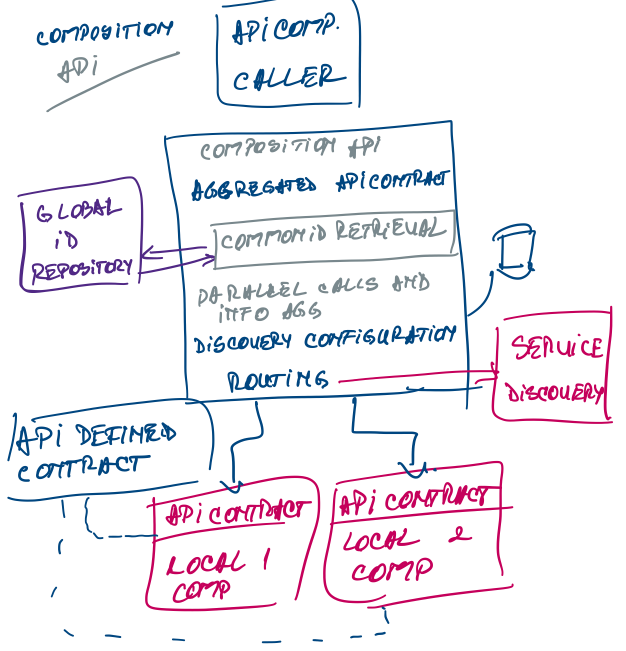 COMPOSITION
API
API COMP.
CALLER
COMPOSITION API
AGGREGATED API CONTRACT
GLOBAL
ID
REPOSITORY
COMMON ID RETRIEVAL
PARALLEL CALLS AND
INFO AGG
DISCOVERY CONFIGURATION
ROUTING
SERVICE
DISCOVERY
API DEFINED
CONTRACT
API CONTRACT
LOCAL 1
COMP
API CONTRACT
LOCAL 2
COMP